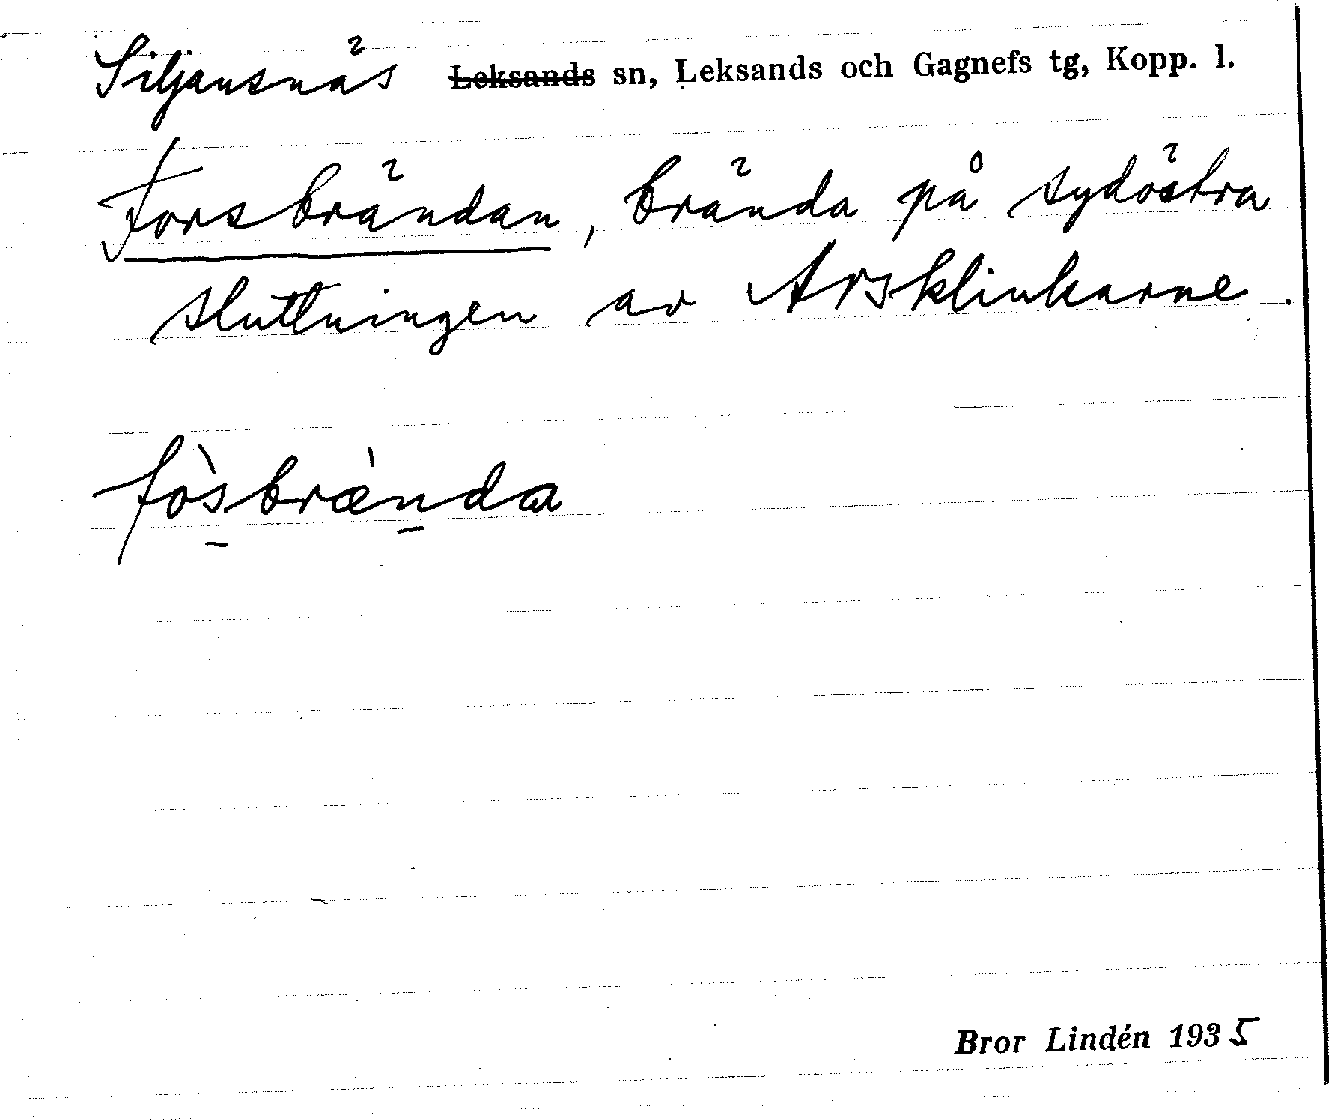 Siljansnäs Leksands sn, Leksands och Gagnefs tg, Kopp. l.
Forsbrändan, brända på sydöstra
sluttningen av Arsklinkarne.
fòsbrǽnda
Bror Lindén 1935